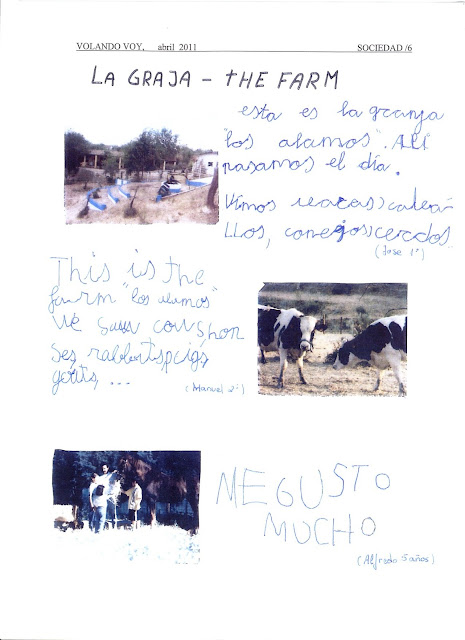 VOLANDO VOY, abril 2011 SOCIEDAD /6
LA GRAJA – THE FARM
esta es la granja
"los alamos". Allí
pasamos el día.
Vimos vacas, caba-
LLos, conejos, cerdos
(Jose 1º)
This is the
farm "los alamos"
We saw cows, hor
ses, rabbits, pigs,
goats, ...
(Manuel 2º)
ME GUSTO
MUCHO
(Alfredo 5 años)